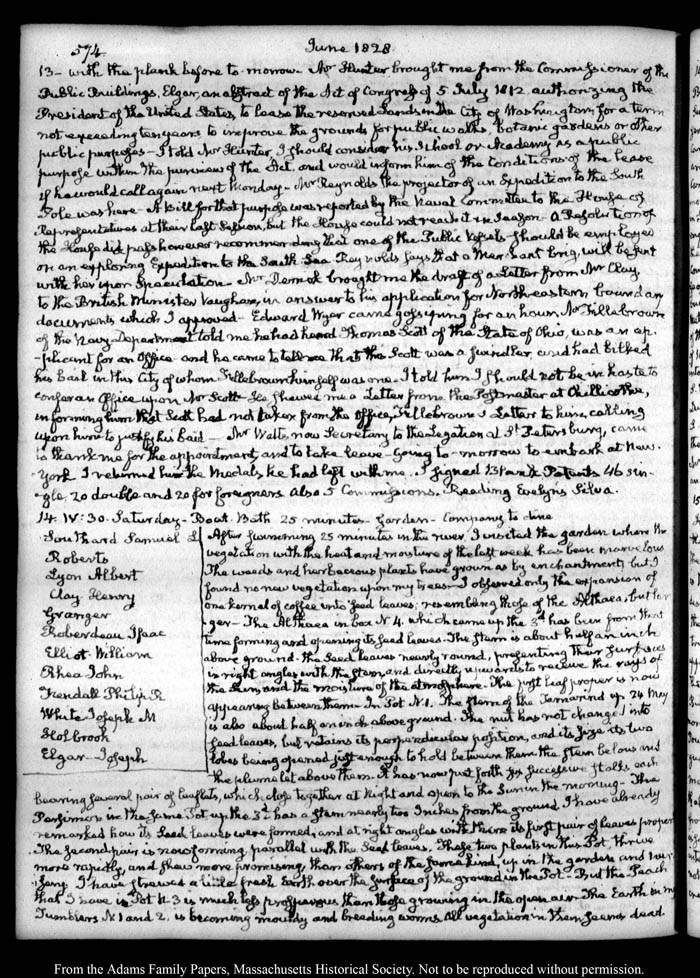 574
June 1828
13- with the plank before to-morrow. Mr Hunter brought me from the Commissioner of the
Public Buildings, Elgar, an abstract of the Act of Congress of 5 July 1812 authorizing the
President of the United States, to lease the reserved Lands in the City of Washington for a term
not exceeding ten years to improve the grounds for public walks, botanic gardens or other
public purposes- I told Mr Hunter I should consider his School or Academy as a public
purpose within the purview of the Act, and would inform him of the Conditions of the lease
if he would call again next Monday- Mr Reynolds the projector of an Expedition to the South
Pole was here- A Bill for that purpose was reported by the Naval Committee to the House of
Representatives at their last Session, but the House could not reach it in season- A Resolution of
the House did pass however recommending that one of the Public Vessels should be employed
on an exploring Expedition to the South Sea. Reynolds says that a Merchant brig, will be sent
with her upon Speculation- Mr brought me the draft of a Letter from Mr Clay,
to the British Minister Vaughan, in answer to his application for North eastern boundary
documents which I approved- Edward Wyer came gossiping for an hour. Mr Fillebrown
of the Navy Department told me he had heard Thomas Scott of the State of Ohio, was an ap-
-plicant for an Office and he came to tell me that this Scott was a swindler, and had bilked
his bail in this City of whom Fillebrown himself was one. I told him I should not be in haste to
confer an Office upon Mr Scott- He shewed me a Letter from the Postmaster at Chillicothe,
informing him that Scott had not taken from the Office, Fillebrown's Letter to him, calling
upon him to justify his bail- Mr now Secretary to the Legation at St Petersburg, came
to thank me for the appointment, and to take leave- Going to-morrow to embark at New-
York. I returned him the Medals he had left with me. I signed blank Patents 46 sin-
-gle, 20 double and 20 for foreigners also 5 Commissions. Reading Evelyn's Silva.
14. IV:30. Saturday- Boat. Bath 25 minutes- Garden- Company to dine
Southard Samuel L
Roberts
Lyon Albert
Clay Henry
Granger
Roberdeau Isaac
Elliot William
Rhea John
Kendall Philip R
White Joseph M
Holbrook
Elgar Joseph
After swimming 25 minutes in the river, I visited the garden where the
vegetation with the heat and moisture of the last week has been marvelous
The weeds and herbaceous plants have grown as by enchantment, but I
found no new vegetation upon my trees- I observed only the expansion of
one kernel of coffee into seed leaves; resembling those of the Althaea, but lar-
ger- The Althaea in box N 4, which came up the 3d has been from that
time forming and opening its seed leaves. The stem is about half an inch
above ground. the seed leaves nearly round, presenting their surfaces
in right angles with the stem, and directly upwards to receive the rays of
the Sun, and the moisture of the atmosphere. The first leaf proper is now
appearing between them. In Pot N. 1. The stem of the Tamarind up 24 May
is also about half an inch above ground. The nut has not changed into
seed leaves, but retains its perpendicular position, and its size, its two
lobes being opened just enough to hold between them the stem below and
the plumelet above them. It has now put forth successive stalks each
bearing several pair of leaflets, which close together at Night and open to the Sun in the morning- The
Parsimon in the same Pot up the 3d has a stem nearly two Inches from the ground. I have already
remarked how its seed leaves were formed, and at right angles with them its first pair of leaves proper
The second pair is now forming, parallel with the seed leaves. These two plants in this Pot thrive
more rapidly, and shew more promising, than others of the same kind, up in the garden and nur-
-sery. I have strewed a little fresh Earth over the surface of the ground in the Pot- But the Peach
that I have in Pot N 3 is much less prosperous than those growing in the open air. The Earth in my
Tumblers N 1 and 2, is becoming mouldy and breeding worms. All vegetation in them seems dead.
From the Adams Family Papers, Massachusetts Historical Society. Not to be reproduced without permission.